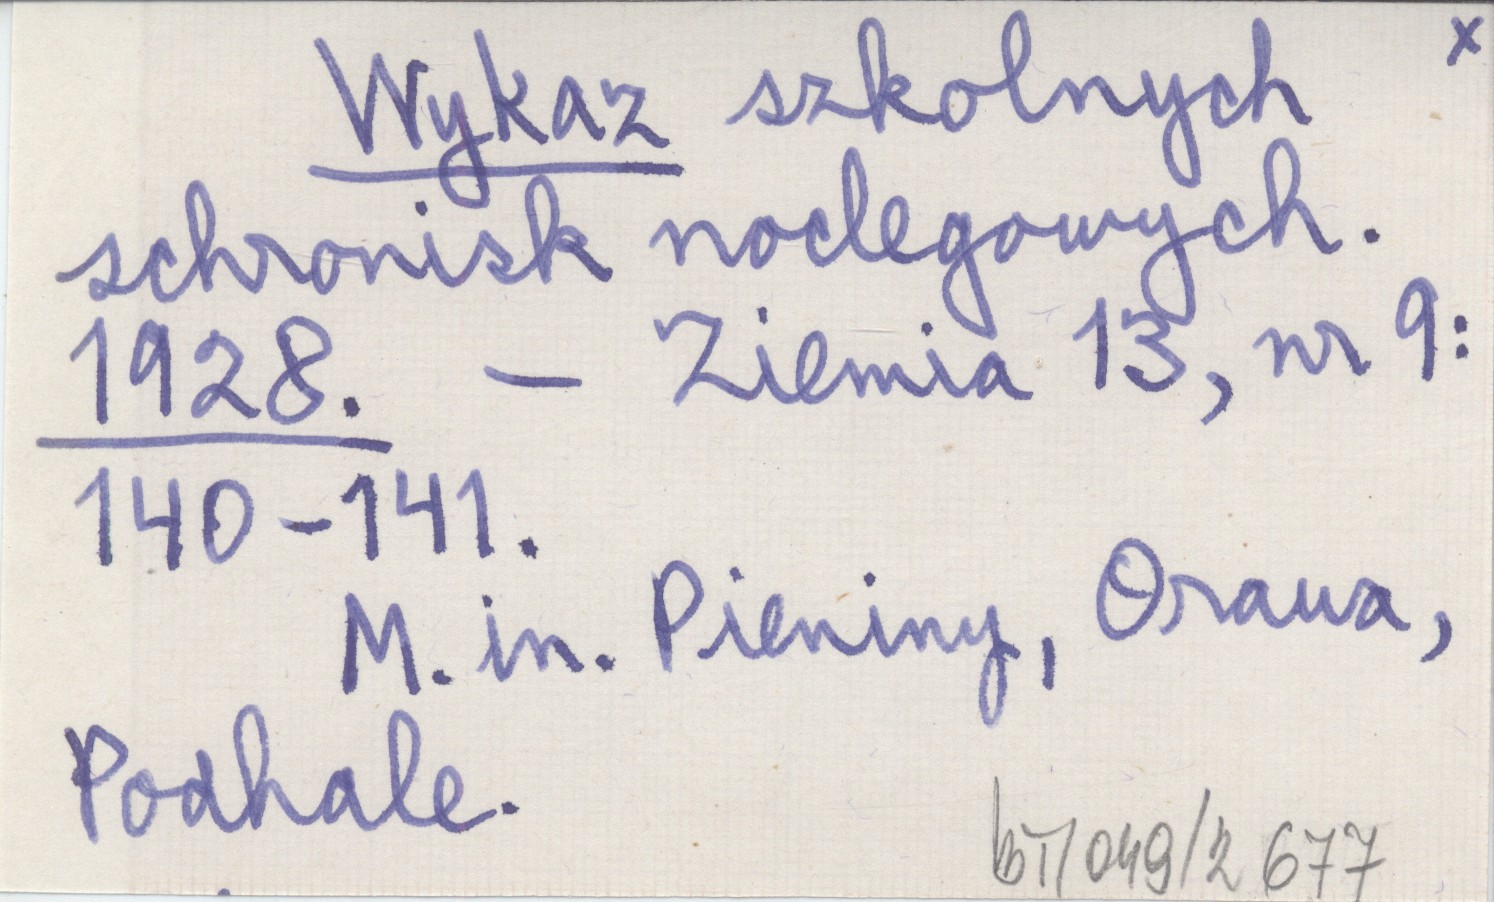 x
Wykaz szkolnych
schronisk noclegowych.
1928. — Ziemia 13, nr 9:
140-141.
M. in. Pieniny, Orawa,
Podhale.
bT/049/2 677